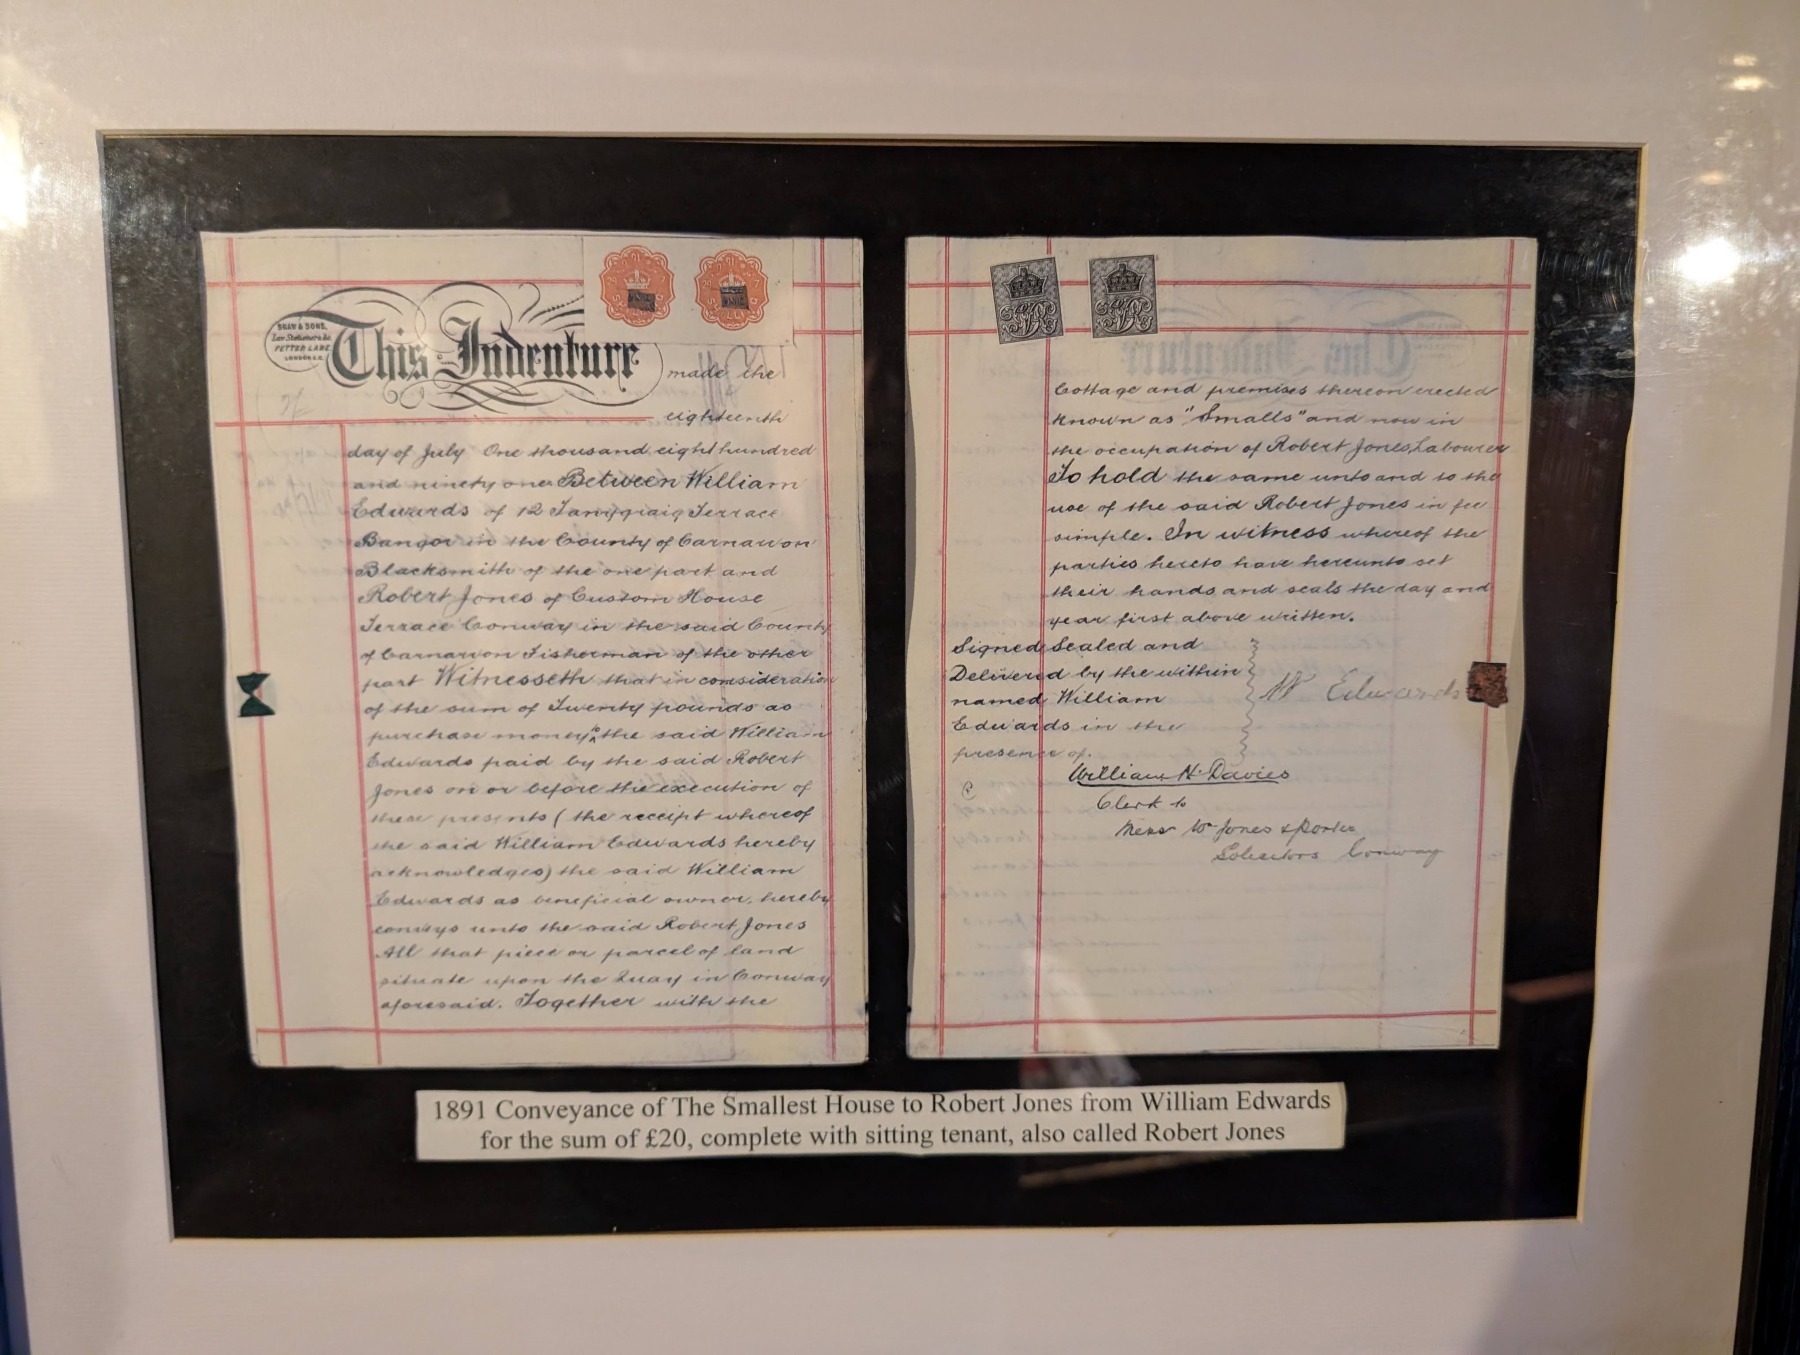 SHAW & SONS,
Law Stationers &c.
FETTER LANE,
LONDON E.C.
This Indenture made the
eighteenth
day of July One thousand eight hundred
and ninety one Between William
Edwards of 12 Terrace
Bangor in the County of Carnarvon
Blacksmith of the one part and
Robert Jones of Custom House
Terrace Conway in the said County
of Carnarvon Fisherman of the other
part Witnesseth that in consideration
of the sum of Twenty pounds as
purchase money to the said William
Edwards paid by the said Robert
Jones on or before the execution of
these presents (the receipt whereof
the said William Edwards hereby
acknowledges) the said William
Edwards as beneficial owner hereby
conveys unto the said Robert Jones
All that piece or parcel of land
situate upon the Quay in Conway
aforesaid. Together with the
Cottage and premises thereon erected
known as "Smalls" and now in
the occupation of Robert Jones, Labourer
To hold the same unto and to the
use of the said Robert Jones in fee
simple. In witness whereof the
parties hereto have hereunto set
their hands and seals the day and
year first above written.
Signed Sealed and
Delivered by the within
named William
Edwards in the
presence of.
Wm Edwards
William H. Davies
Clerk to
Messr Wm Jones & Porter
Solicitors Conway
1891 Conveyance of The Smallest House to Robert Jones from William Edwards
for the sum of £20, complete with sitting tenant, also called Robert Jones